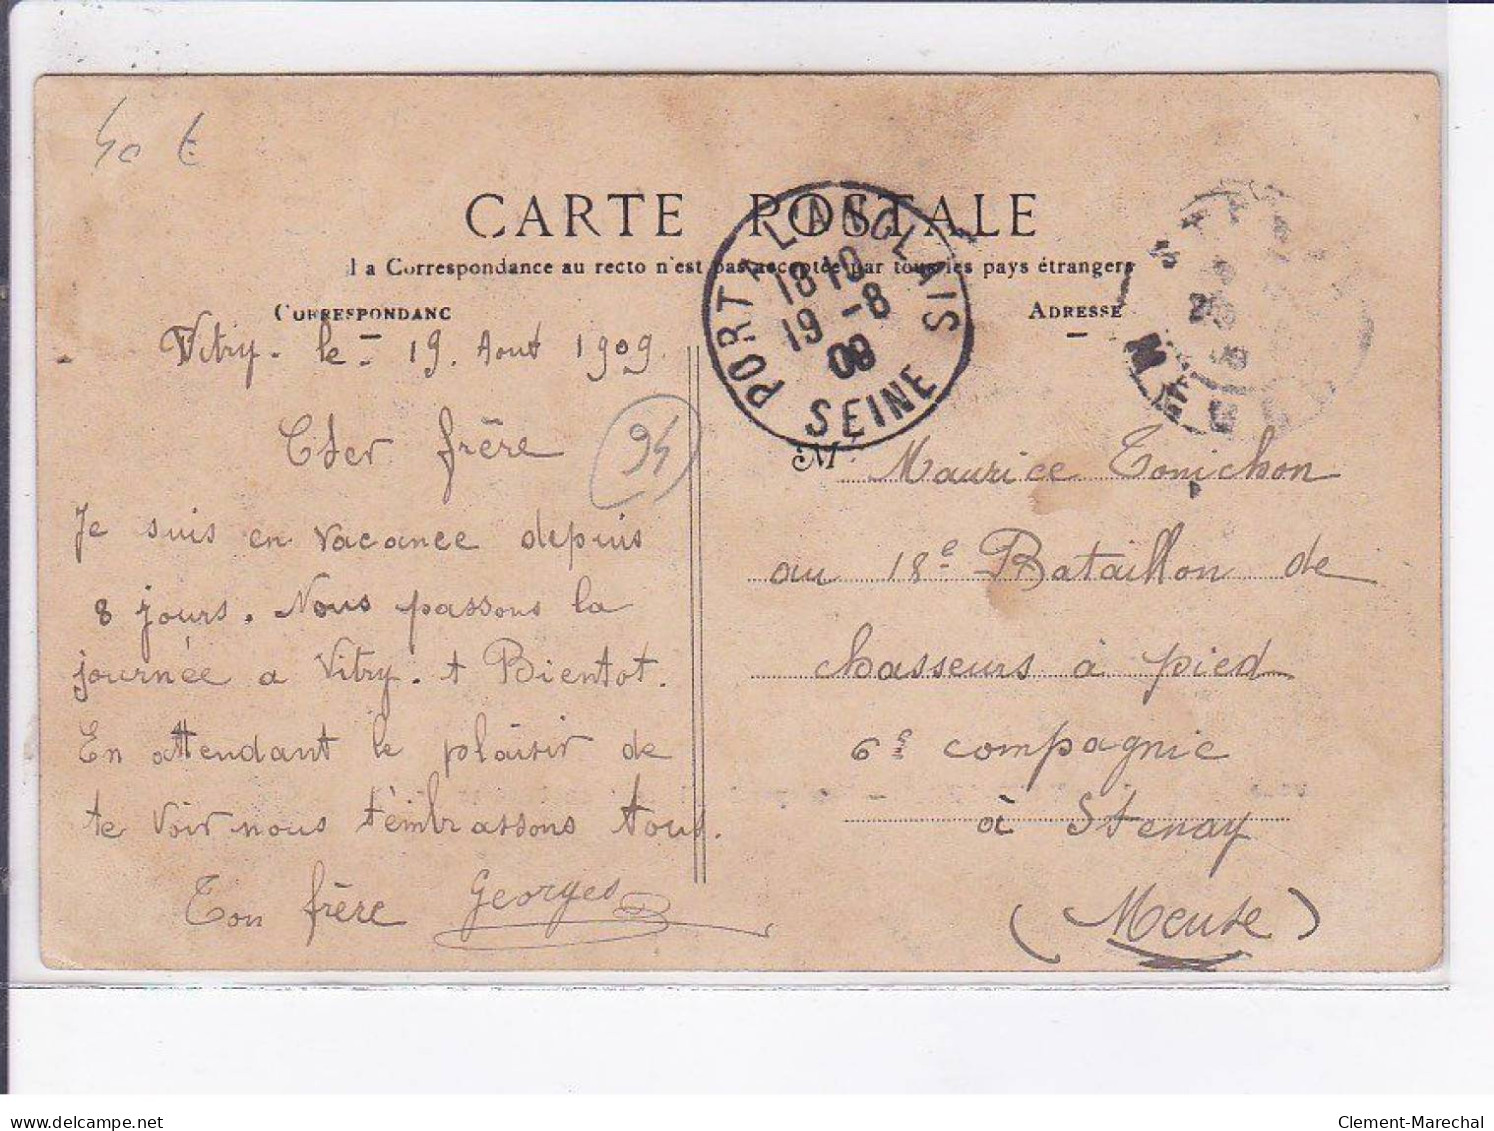 40 €
CARTE POSTALE
La Correspondance au recto n'est pas acceptée par tous les pays étrangers
CORRESPONDANC
ADRESSE
PORT A L'ANGLAIS
18 10
19 -8
09
SEINE
Vitry. le - 19. Aout 1909
Cher frère
94
Je suis en vacance depuis
8 jours. Nous passons la
journée a Vitry. A Bientot.
En attendant le plaisir de
te voir nous t'embrassons tous.
Ton frère Georges
M Maurice Tonichon
au 18e Bataillon de
chasseurs à pied
6e compagnie
à Stenay
(Meuse)
delcampe.net
Clement-Marechal